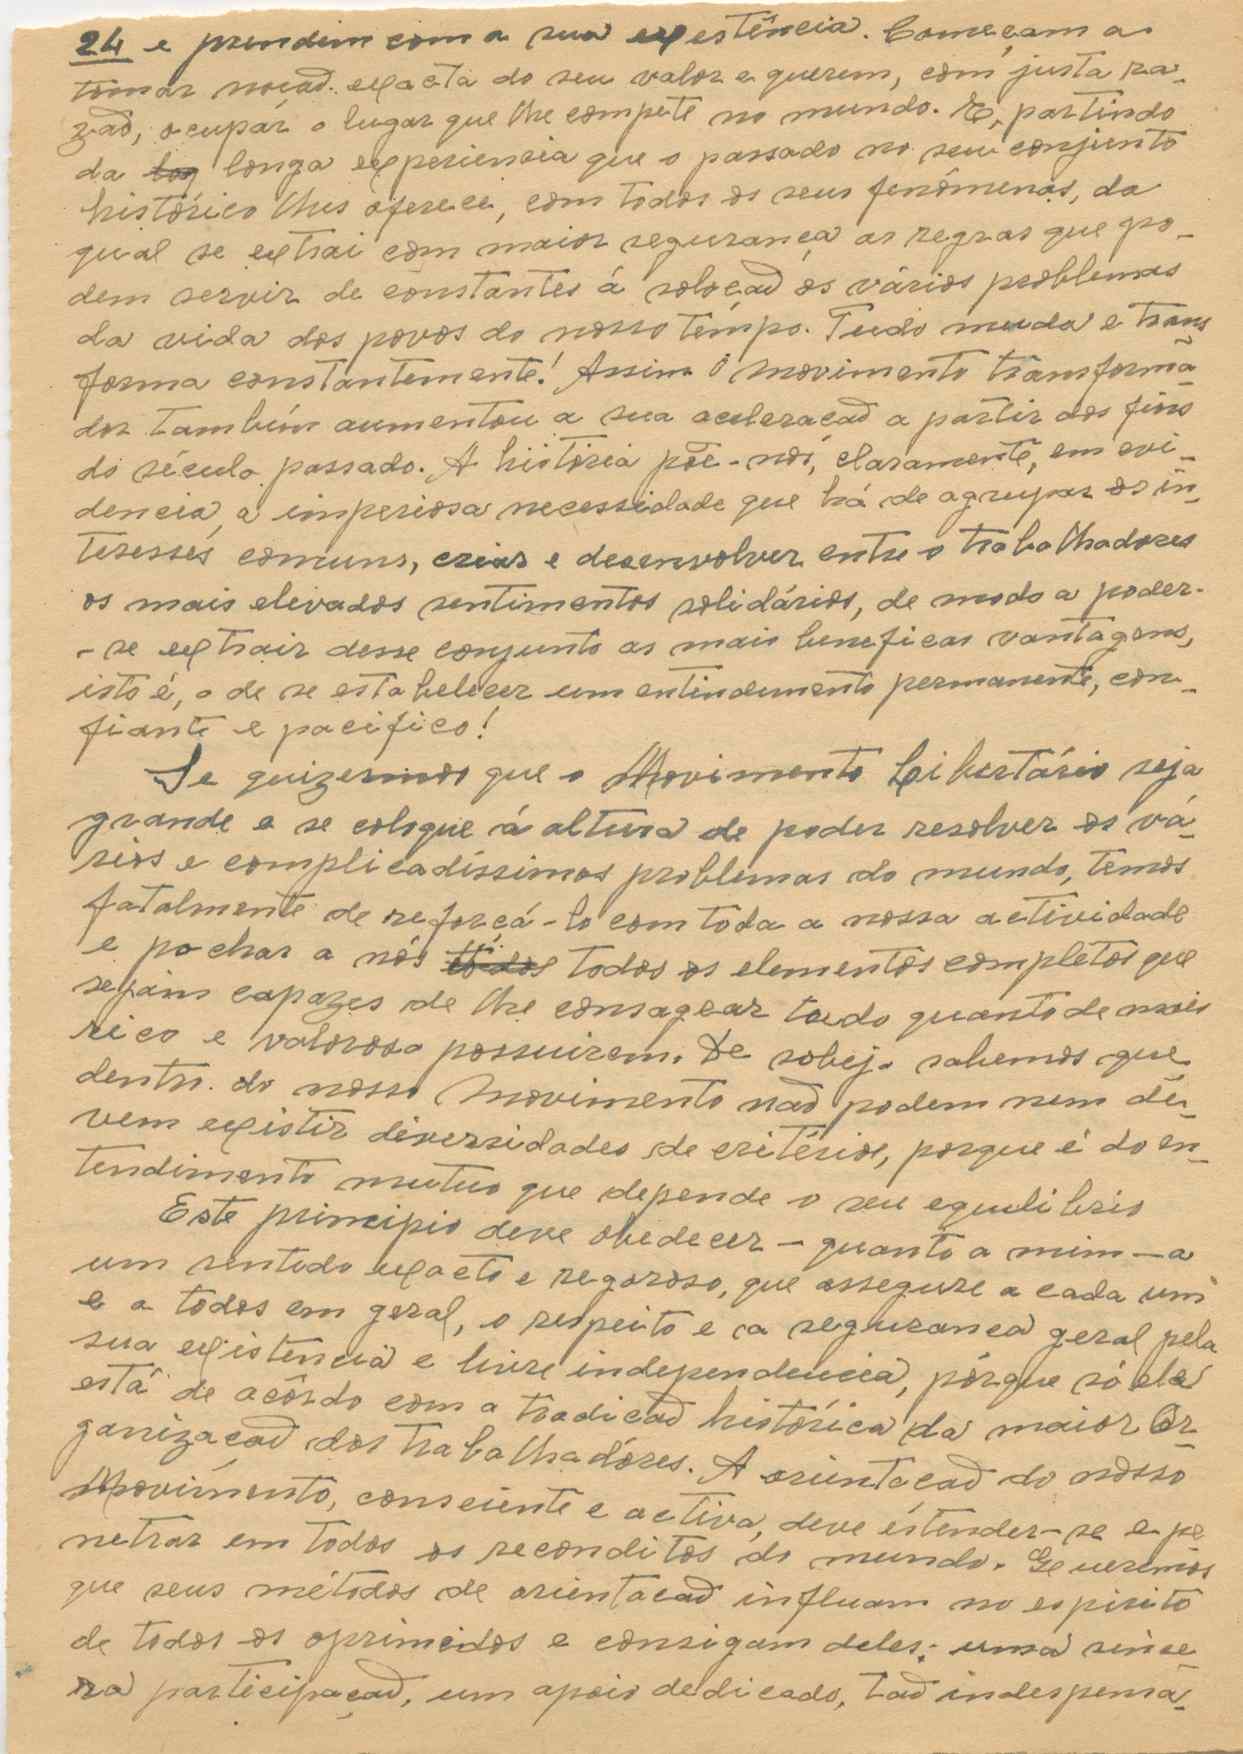 24 e prendem com a sua existência. Começam a
tomar noçaõ exacta do seu valor e querem, com justa ra-
zaõ, ocupár o lugar que lhe compete no mundo. E, partindo
da log longa experiencia que o passado no seu conjunto
histórico lhes oferece, com todos os seus fenómenos, da
qual se extrai com maior segurança as regras que po-
dem servir de constantes á soloçaõ os vários problemas
da vida dos povos do nosso tempo. Tudo muda e trans
forma constantemente! Assim o movimento transforma-
dor também aumentou a sua aceleraçaõ a partir dos fins
do século passado. A história põe-nos, claramente, em evi-
dencia, a imperiosa necessidade que há de agrupar os in-
teresses comuns, criar e desenvolver entre o trabalhadores
os mais elevados sentimentos solidários, de modo a poder-
-se extrair desse conjunto as mais beneficas vantagens,
isto é, o de se estabelecer um entindemento permanente, con-
fiante e pacifico!
Se quizermos que o Movimento Libertário seja
grande e se coloque á altura de poder resolver os vá-
rios e complicadíssimos problemas do mundo, temos
fatalmente de reforçá-lo com tôda a nossa actividade
e pochar a nós todos todos os elementos completos que
sejam capazes de lhe consagrar tudo quanto de mais
rico e valoroso possuirem. De sobejo sabemos que
dentro do nosso Movimento naõ podem nem de-
vem existir diversidades de critérios, porque é do en-
tendimento mutuo que depende o seu equilibrio
Este principio deve obedecer - quanto a mim - a
um sentido exacto e regoroso, que assegure a cada um
e a todos em geral, o respeito e a segurança geral pela
sua existencia e livre independencia, pórque só ela
está de acôrdo com a tradicaõ histórica da maior Or-
ganizaçaõ dos trabalhadóres. A orientacaõ do nosso
Movimento, consciente e activa, deve estender-se e pe
netrar em todos os reconditos do mundo. Queremos
que seus métodos de orientacaõ influam no espirito
de todos os oprimidos e consigam deles: uma since-
ra participaçaõ, um apoio dedicado, taõ indespensa-